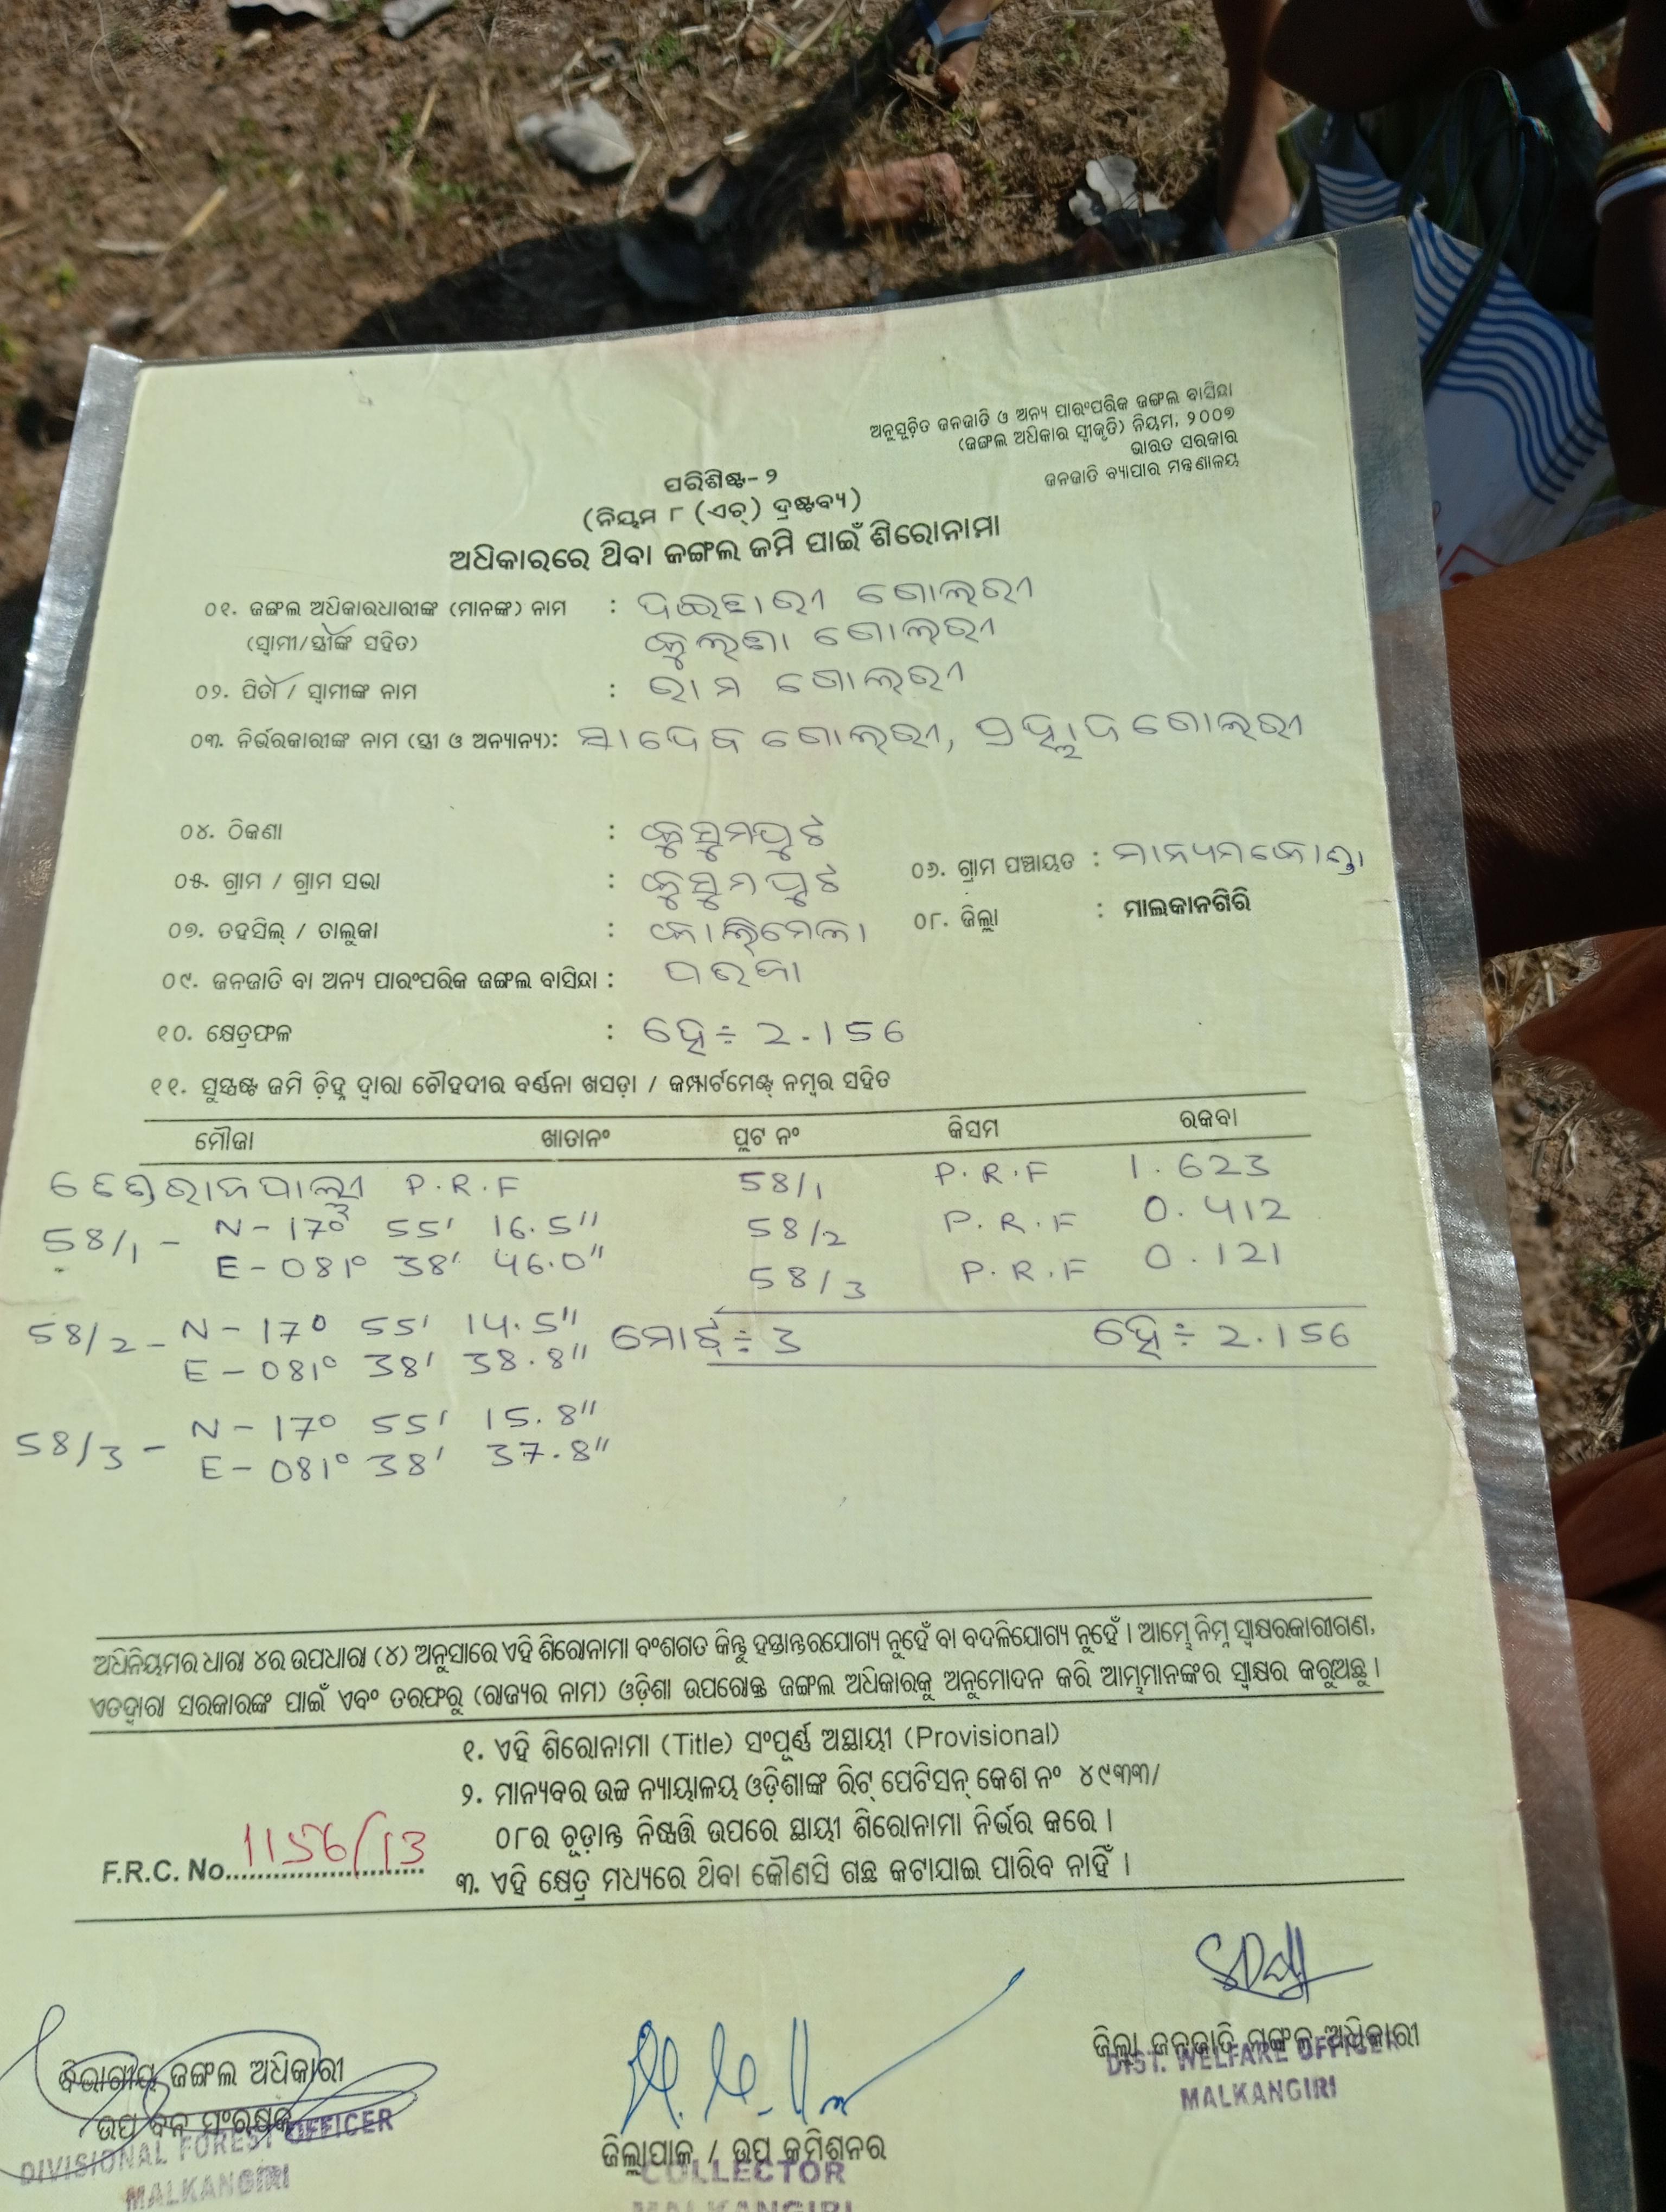 ଅନୁସୂଚିତ ଜନଜାତି ଓ ଅନ୍ୟ ପାରଂପରିକ ଜଙ୍ଗଲ ବାସିନ୍ଦା
(ଜଙ୍ଗଲ ଅଧିକାର ସ୍ୱୀକୃତି) ନିୟମ, ୨୦୦୭
ଭାରତ ସରକାର
ଜନଜାତି ବ୍ୟାପାର ମନ୍ତ୍ରଣାଳୟ
ପରିଶିଷ୍ଟ- ୨
(ନିୟମ ୮ (ଏଚ୍) ଦ୍ରଷ୍ଟବ୍ୟ)
ଅଧିକାରରେ ଥିବା ଜଙ୍ଗଲ ଜମି ପାଇଁ ଶିରୋନାମା
୦୧. ଜଙ୍ଗଲ ଅଧିକାରଧାରୀଙ୍କ (ମାନଙ୍କ) ନାମ : ଗୋଲରୀ
(ସ୍ୱାମୀ/ସ୍ତ୍ରୀଙ୍କ ସହିତ) ଗୋଲରୀ
୦୨. ପିତା / ସ୍ୱାମୀଙ୍କ ନାମ : ରାମ ଗୋଲରୀ
୦୩. ନିର୍ଭରକାରୀଙ୍କ ନାମ (ସ୍ତ୍ରୀ ଓ ଅନ୍ୟାନ୍ୟ): ଗୋଲରୀ, ପ୍ରହ୍ଲାଦ ଗୋଲରୀ
୦୪. ଠିକଣା : କୁସୁମପୁଟ
୦୫. ଗ୍ରାମ / ଗ୍ରାମ ସଭା : କୁସୁମପୁଟ ୦୬. ଗ୍ରାମ ପଞ୍ଚାୟତ : ମାନ୍ୟମକୋଣ୍ଡା
୦୭. ତହସିଲ୍ / ତାଲୁକା : କାଲିମେଳା ୦୮. ଜିଲ୍ଲା : ମାଲକାନଗିରି
୦୯. ଜନଜାତି ବା ଅନ୍ୟ ପାରଂପରିକ ଜଙ୍ଗଲ ବାସିନ୍ଦା : ପରଜା
୧୦. କ୍ଷେତ୍ରଫଳ : ହେ÷ 2.156
୧୧. ସୁସ୍ପଷ୍ଟ ଜମି ଚ଼ିହ୍ନ ଦ୍ୱାରା ଚୌହଦୀର ବର୍ଣ୍ଣନା ଖସଡ଼ା / କମ୍ପାର୍ଟମେଣ୍ଟ୍ ନମ୍ବର ସହିତ
ମୌଜା ଖାତାନଂ ପ୍ଲଟ ନଂ କିସମ ରକବା
P.R.F 58/1 P.R.F 1.623
58/1 - N - 17° 55' 16.5" 58/2 P.R.F 0.412
E - 081° 38' 46.0" 58/3 P.R.F 0.121
58/2 - N - 17° 55' 14.5" ମୋଟ ÷ 3 ହେ÷ 2.156
E - 081° 38' 38.8"
58/3 - N - 17° 55' 15.8"
E - 081° 38' 37.8"
ଅଧିନିୟମର ଧାରା ୪ର ଉପଧାରା (୪) ଅନୁସାରେ ଏହି ଶିରୋନାମା ବଂଶଗତ କିନ୍ତୁ ହସ୍ତାନ୍ତରଯୋଗ୍ୟ ନୁହେଁ ବା ବଦଳିଯୋଗ୍ୟ ନୁହେଁ । ଆମ୍ଭେ ନିମ୍ନ ସ୍ୱାକ୍ଷରକାରୀଗଣ,
ଏତଦ୍ଦ୍ୱାରା ସରକାରଙ୍କ ପାଇଁ ଏବଂ ତରଫରୁ (ରାଜ୍ୟର ନାମ) ଓଡ଼ିଶା ଉପରୋକ୍ତ ଜଙ୍ଗଲ ଅଧିକାରକୁ ଅନୁମୋଦନ କରି ଆମ୍ଭମାନଙ୍କର ସ୍ୱାକ୍ଷର କରୁଅଛୁ ।
୧. ଏହି ଶିରୋନାମା (Title) ସଂପୂର୍ଣ୍ଣ ଅସ୍ଥାୟୀ (Provisional)
୨. ମାନ୍ୟବର ଉଚ୍ଚ ନ୍ୟାୟାଳୟ ଓଡ଼ିଶାଙ୍କ ରିଟ୍ ପେଟିସନ୍ କେଶ ନଂ ୪୯୩୩/
୦୮ର ଚୂଡ଼ାନ୍ତ ନିଷ୍ପତ୍ତି ଉପରେ ସ୍ଥାୟୀ ଶିରୋନାମା ନିର୍ଭର କରେ ।
F.R.C. No. 1156/13
୩. ଏହି କ୍ଷେତ୍ର ମଧ୍ୟରେ ଥିବା କୌଣସି ଗଛ କଟାଯାଇ ପାରିବ ନାହିଁ ।
ଜିଲ୍ଲା ଜନଜାତି ମଙ୍ଗଳ ଅଧିକାରୀ
DIST. WELFARE OFFICER
MALKANGIRI
ବିଭାଗୀୟ ଜଙ୍ଗଲ ଅଧିକାରୀ
ଉପ ବନ ସଂରକ୍ଷକ
DIVISIONAL FOREST OFFICER
MALKANGIRI
ଜିଲ୍ଲାପାଳ / ଉପ କମିଶନର
COLLECTOR
MALKANGIRI